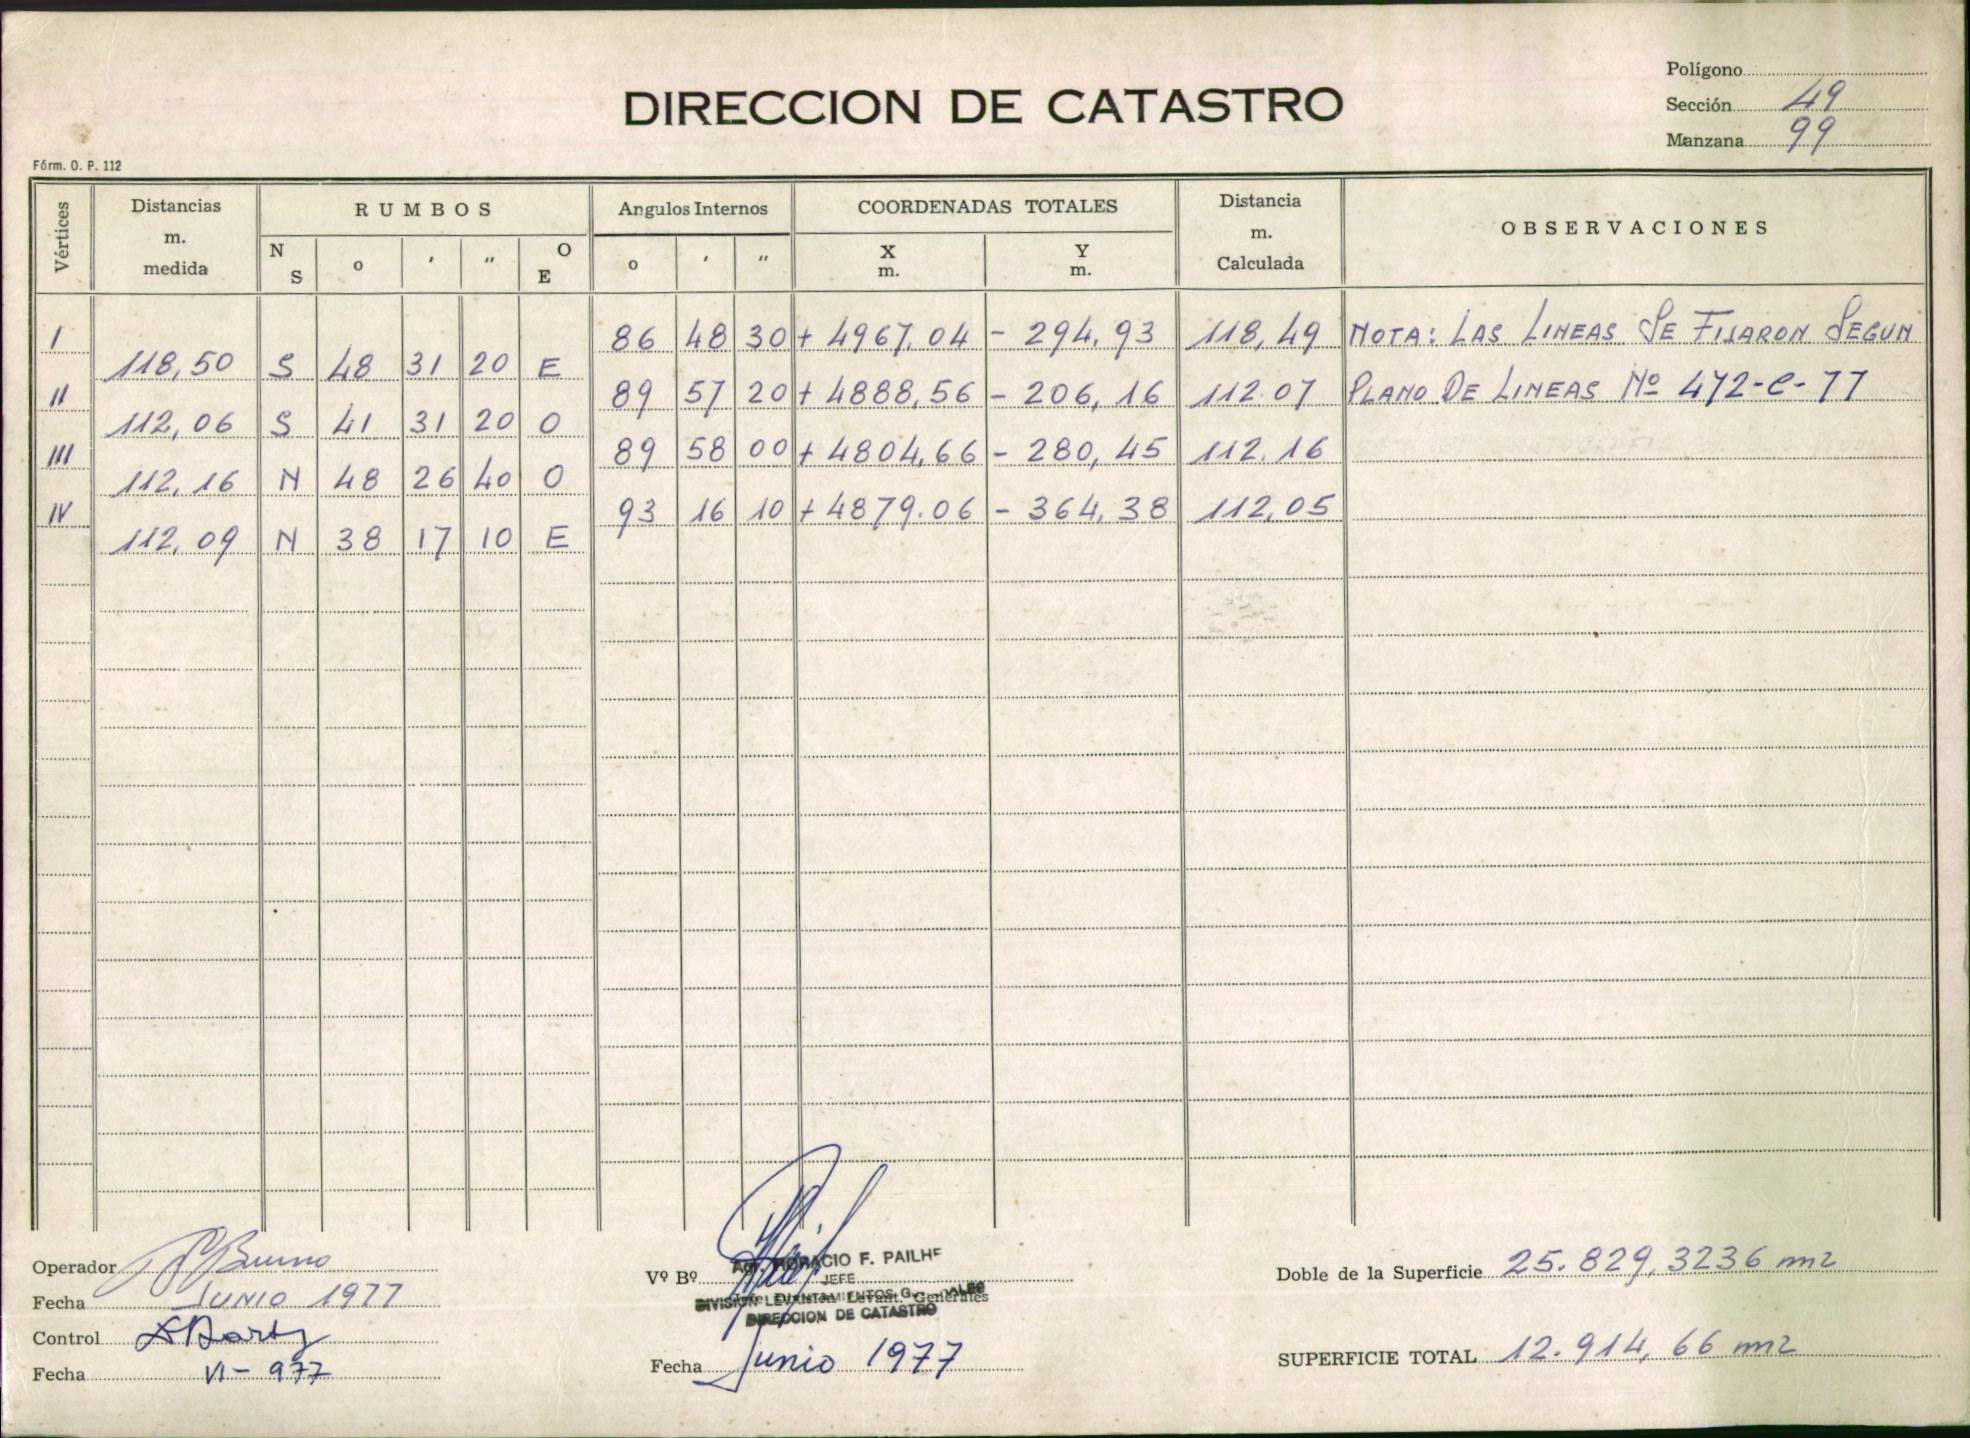 Polígono
DIRECCION DE CATASTRO
Sección 49
Manzana 99
Fórm. O. P. 112
Vértices
Distancias m. medida
RUMBOS
Angulos Internos
COORDENADAS TOTALES
Distancia m. Calculada
OBSERVACIONES
N S o ' " O E
o ' "
X m. Y m.
I 86 48 30 + 4967,04 - 294,93 118,49 NOTA: LAS LINEAS SE FIJARON SEGUN
118,50 S 48 31 20 E
II 89 57 20 + 4888,56 - 206,16 112.07 PLANO DE LINEAS Nº 472-C-77
112,06 S 41 31 20 O
III 89 58 00 + 4804,66 - 280,45 112.16
112,16 N 48 26 40 O
IV 93 16 10 + 4879.06 - 364,38 112,05
112,09 N 38 17 10 E
Operador
Fecha JUNIO 1977
Control
Fecha VI-977
Vº Bº
HORACIO F. PAILHE
JEFE
DIVISION LEVANTAMIENTOS
Levant. Generales
DIRECCION DE CATASTRO
Fecha Junio 1977
Doble de la Superficie 25.829,3236 m2
SUPERFICIE TOTAL 12.914,66 m2